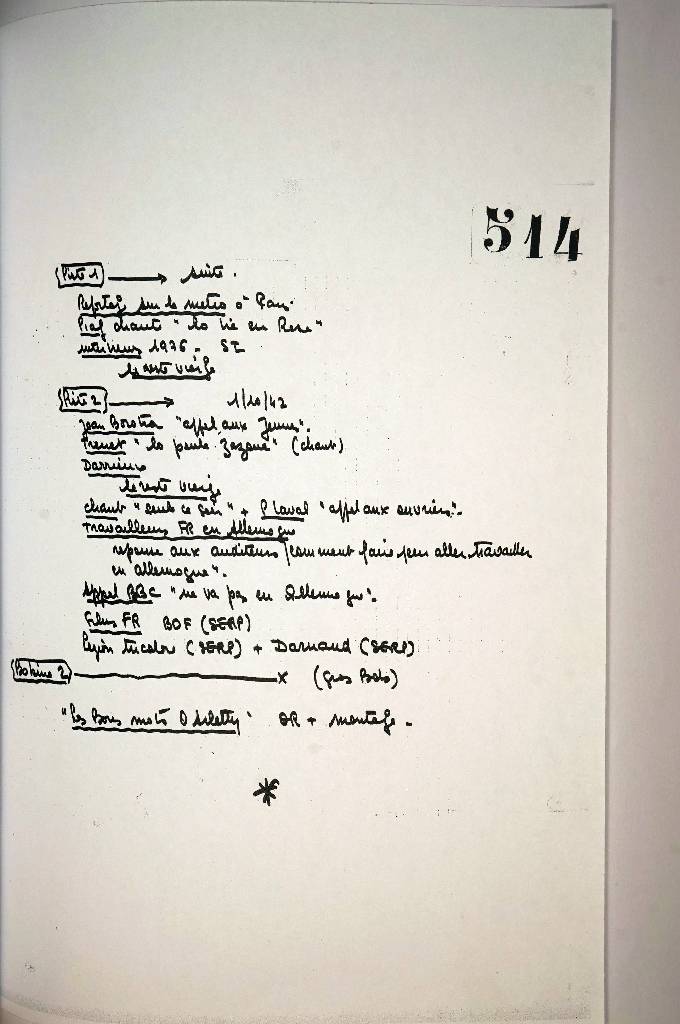 514
Piste 1 → suite.
Reportage sur le metro à Paris
Piaf chante "la vie en Rose"
1936 - SI
le reste vierge
Piste 2 → 1/10/42
Jean Borotra "appel aux Jeunes".
Trenet "la poule Zazoue" (chant)
Darrieux
le reste vierge
chant "seule ce soir" + P Laval "appel aux ouvriers".
travailleurs FR en Allemagne
reponse aux auditeurs "comment faire pour aller travailler
en allemagne".
Appel BBC "ne va pas en Allemagne".
Films FR BOF (SERP)
Légion tricolore (SERP) + Darnand (SERP)
Bobine 2 x (gros Bob)
"Les Bons mots D Arletty" OR + montage -
*